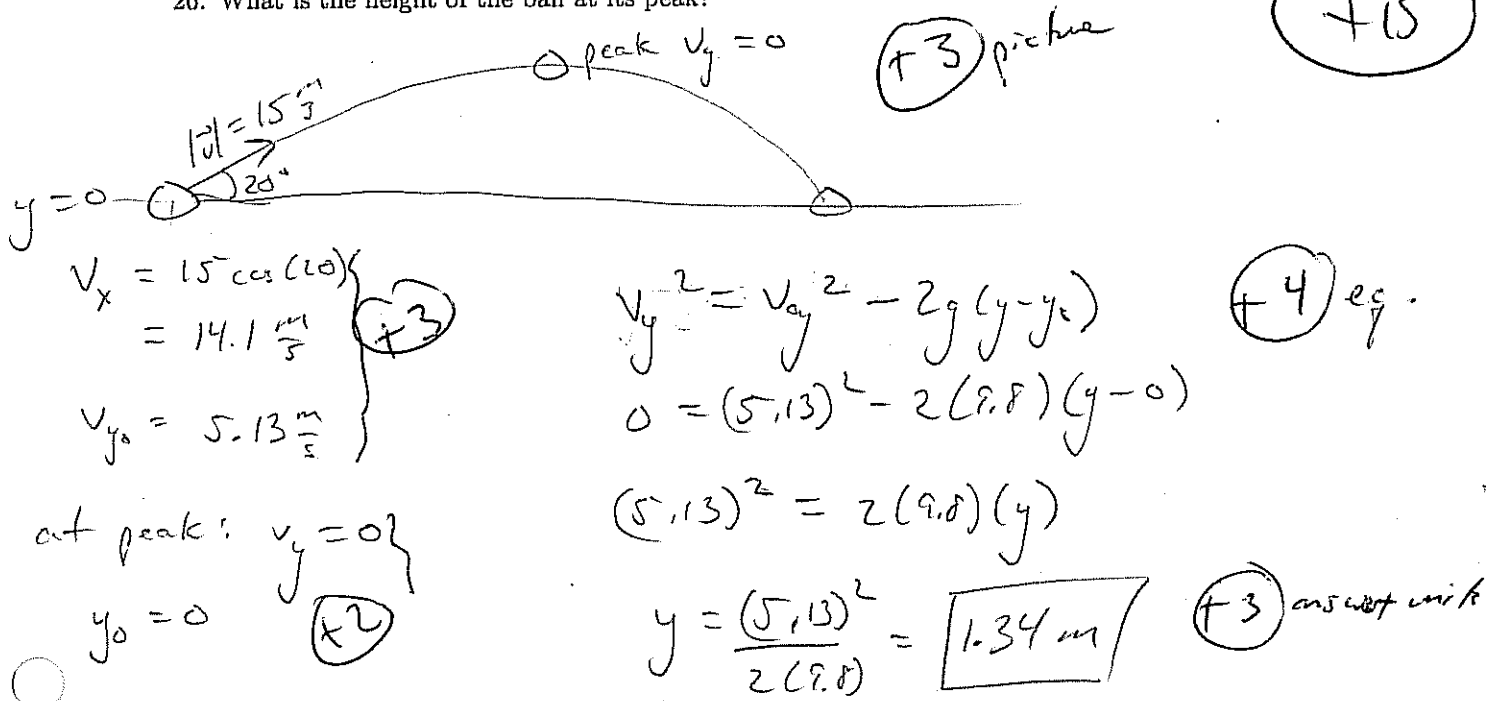 26. What is the height of the ball at its peak?
+15
peak v_y = 0
+3 picture
|v⃗| = 15 m/s
20°
y = 0
V_x = 15 cos(20)
= 14.1 m/s
+3
V_y0 = 5.13 m/s
at peak: v_y = 0
y_0 = 0
+2
V_y^2 = V_oy^2 - 2g(y-y_0)
+4 eq.
0 = (5.13)^2 - 2(9.8)(y-0)
(5.13)^2 = 2(9.8)(y)
y = (5.13)^2 / 2(9.8) = 1.34 m
+3 answer